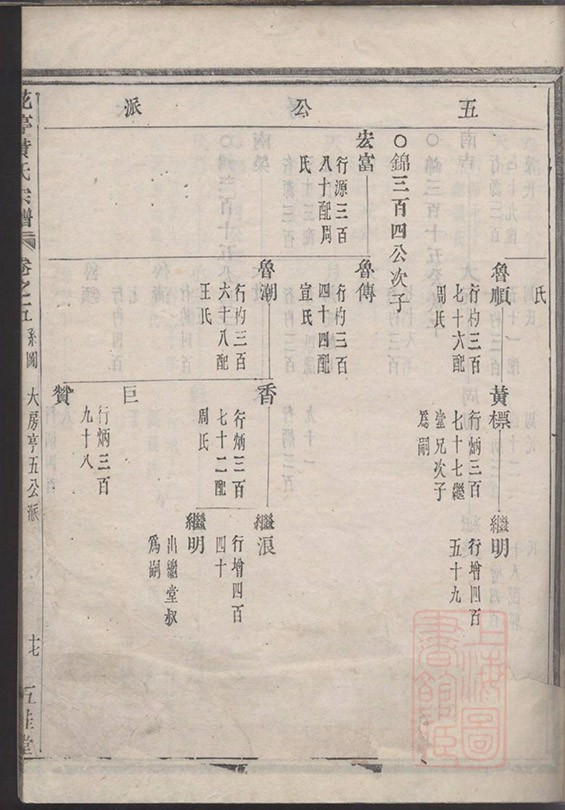 五公派
氏
魯順
行杓三百
七十六配
周氏
黃標
行炳三百
七十七繼
堂兄次子
爲嗣
繼明
行增四百
五十九
○錦三百四公次子
宏富
行源三百
八十配周
氏
魯傳
行杓三百
四十四配
宣氏
魯潮
行杓三百
六十八配
王氏
香
行炳三百
七十二配
周氏
繼浪
行增四百
四十
繼明
出繼堂叔
爲嗣
巨
贊
行炳三百
九十八
花亭黄氏宗譜
卷之五
系圖
大房亭五公派
十七
五桂堂
上海圖書館藏